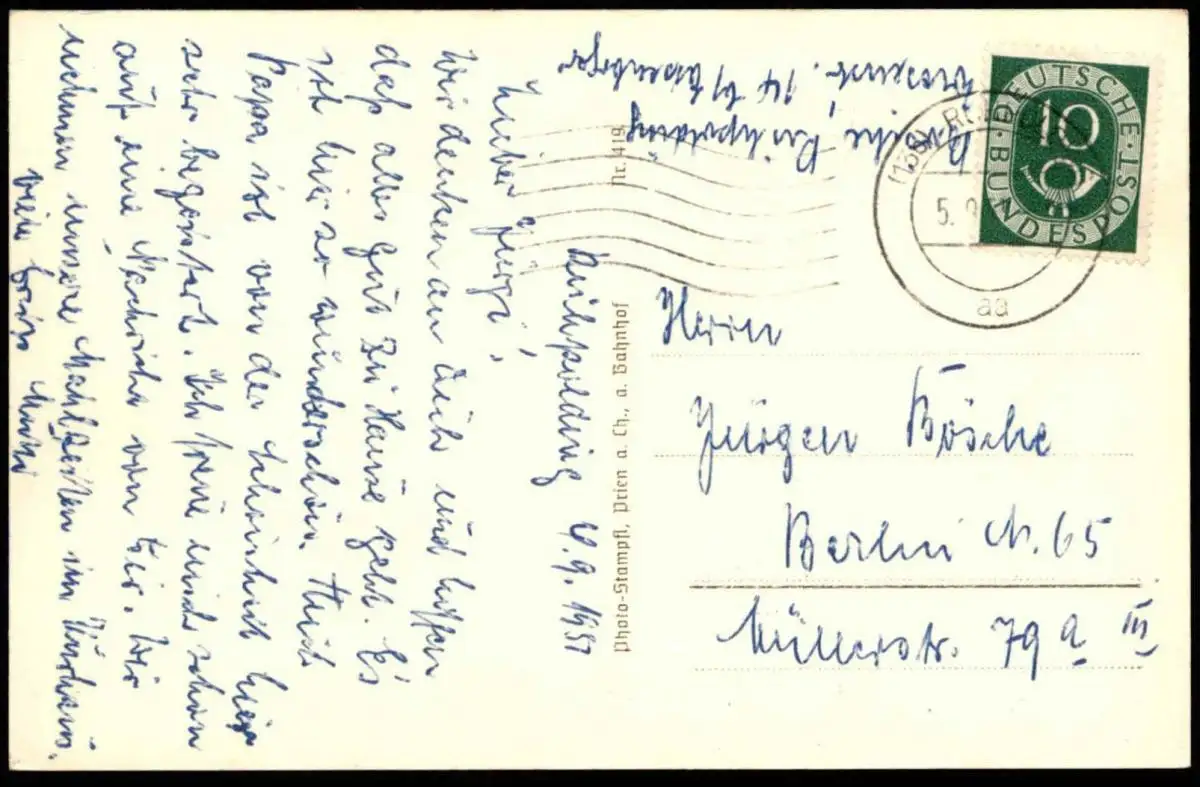 Ruhpolding 4.9.1951
Lieber Jürgi!
Wir denken an Dich und hoffen
daß alles gut zu Hause geht. Es
ist hier so wunderschön. Auch
Papa ist von der Schönheit hier
sehr begeistert. Ich freue mich schon
auf eine Nachricht von Dir. Wir
nehmen unsere Mahlzeiten im Kurhaus.
viele Grüße Mutti
Ruhpolding
14 b/
Nr. 419
Photo-Stampfl, Prien a. Ch., a. Bahnhof
DEUTSCHE BUNDESPOST
10
(13b)
5.
aa
Herrn
Jürgen Bösche
Berlin N. 65
Müllerstr. 79a III